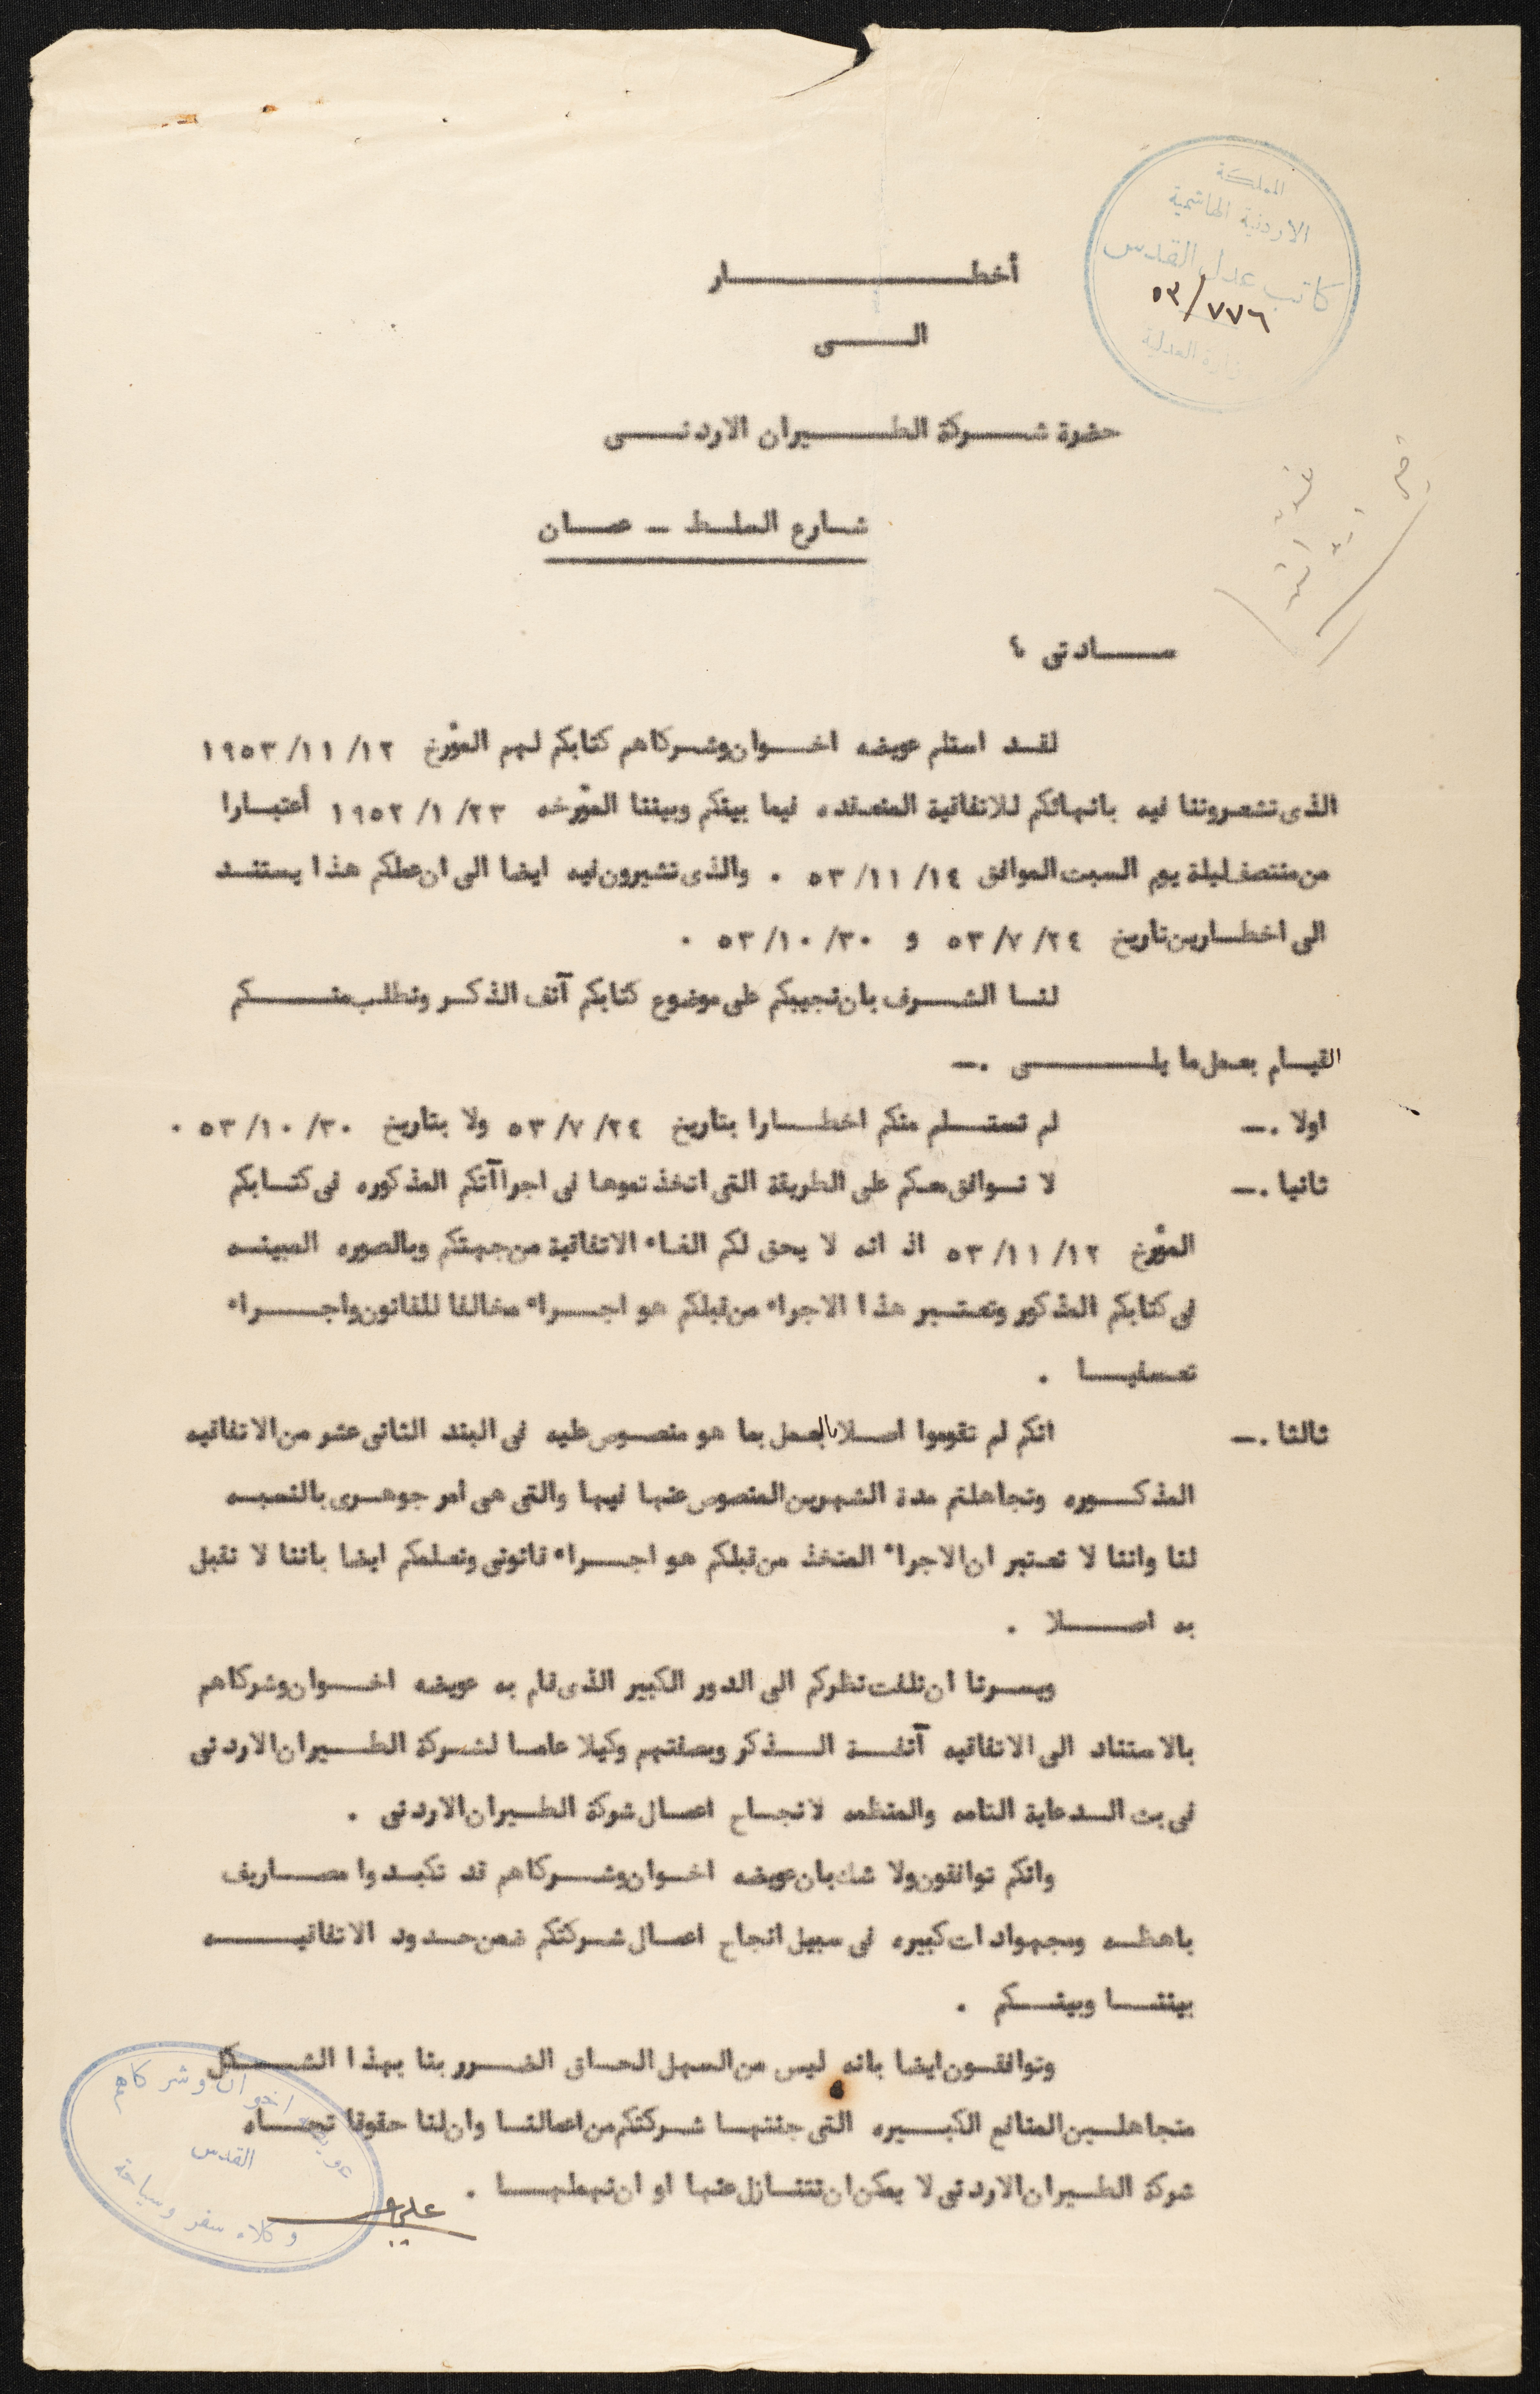 المملكة
الاردنية الهاشمية
كاتب عدل القدس
٥٣/٧٧٦
وزارة العدلية
أخطــــــــــار
الــــى
حضرة شــركة الطــــيران الاردنـــى
شــارع السلــط ــ عمــان
ســـادتى ،
لقــد استلم عويضه اخــوان وشــركاهم كتابكم لهم المؤرخ ١٢/ ١١/ ١٩٥٣
الذى تشعروننا فيه بانهائكم للاتفاقية المنعقده فيما بينكم وبيننا المؤرخه ٢٣/ ١/ ١٩٥٢ أعتبــارا
من منتصف ليلة يوم السبت الموافق ١٤/ ١١/ ٥٣ ٠ والذى تشيرون فيه ايضا الى ان عملكم هذا يستنــد
الى اخطــارين تاريخ ٢٤/ ٧/ ٥٣ و ٣٠/ ١٠/ ٥٣ ٠
لنــا الشــرف بان نجيبكم على موضوع كتابكم آنف الذكــر ونطلب منــــكم
القيــام بعمل ما يلــــــى ٠ــ
اولا ٠ــ لم نستــلم منكم اخطــارا بتاريخ ٢٤/ ٧/ ٥٣ ولا بتاريخ ٣٠/ ١٠/ ٥٣ ٠
ثانيا ٠ــ لا نــوافق معكم على الطريقة التى اتخذتموها فى اجراآتكم المذكوره فى كتــابكم
المؤرخ ١٢/ ١١/ ٥٣ اذ انه لا يحق لكم الغــاء الاتفاقية من جهتكم وبالصوره المبينــه
فى كتابكم المذكور ونعتــبر هذا الاجراء من قبلكم هو اجــراء مخالفا للقانون واجــــراء
تعسفيــــا ٠
ثالثا ٠ــ انكم لم تقوموا اصــلا بالعمل بما هو منصوص عليه فى البند الثانى عشر من الاتفاقيه
المذكــوره وتجاهلتم مدة الشهرين المنصوص عنها فيها والتى هى امر جوهــرى بالنسبــه
لنا واننا لا نعتبر ان الاجراء المتخذ من قبلكم هو اجــــراء قانونى ونعلمكم ايضا باننا لا نقبل
به اصــــلا ٠
ويســرنا ان نلفت نظركم الى الدور الكبير الذى قام به عويضه اخــوان وشركاهم
بالاستناد الى الاتفاقيه آنفــة الــذكر وبصفتهم وكيلا عامــا لشــركة الطــيران الاردنى
فى بث الــدعاية التامه والمنظمه لانجــاح اعمــال شركة الطــيران الاردنى ٠
وانكم توافقون ولا شك بان عويضه اخــوان وشــركاهم قد تكبــدوا مصــاريف
باهظــه ومجهوادات كبيره فى سبيل انجاح اعمــال شــركتكم ضمن حــدود الاتفاقيـــه
بيننـــا وبينـــكم ٠
وتوافقــون ايضا بانه ليس من السهل الحــاق الضــرر بنا بهذا الشــــكل
متجاهلــين المنافع الكبــيره التى جنتهــا شــركتكم من اعمالنــا وان لنا حقوقا تجـــاه
شركة الطــيران الاردنى لا يمكن ان نتنــازل عنها او ان نهملهـــا ٠
عويضه اخوان وشركاهم
القدس
وكلاء سفر وسياحة